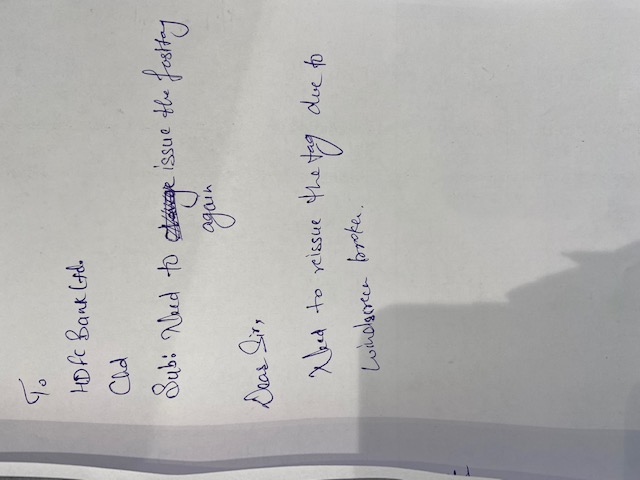 To
HDFC Bank Ltd.
Chd
Sub: Need to issue the fasttag
again
Dear Sir,
Need to reissue the tag due to
windscreen broken.